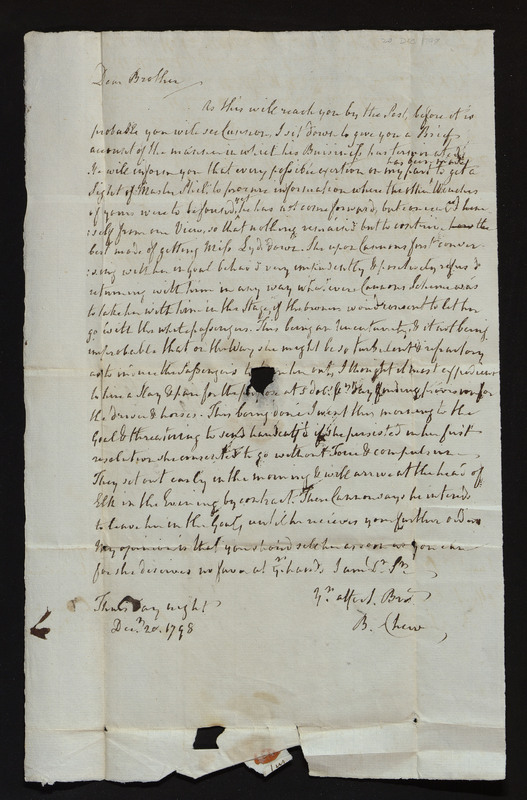 Dear Brother
As this will reach you by the Post, before it is
probable you will see Cannon, I set down to give you a Brief
account of the manner in which his Business has
He will inform you that every possible exertion on my part has been made to get a
sight of Master Phil: to procure information where the other Wenches
of yours were to be found, he has not come forward, but
self from our View, so that nothing remained but to contrive the
best mode of getting Miss Lyd: down. She upon Cannons first conver-
:sing with her in Goal behav'd very impudently & positively refus'd
returning with him in any way whatever. Cannons Scheme was
to take her with him in the Stage, if the owner would consent to let her
go with the white passengers. This being an uncertainty, & it not being
improbable that on the Way she might be so turbulent & refractory
as to the Passengers to turn her out, I thought it most expedient
to hire a Stay & pair for the purpose at 5 dols. per Day finding provision for
the driver & horses. This being done I went this morning to the
Goal & threatening to send handcuff'd if she persisted in her first
resolution she consented to go without Force & compulsion
They set out early in the morning & will arrive at the head of
Elk in the Evening by contract. Then Cannon says he intends
to leave her in the Goal, until he recieves your further orders
My opinion is that you should sell her as soon as you can
for she deserves no favor at Yr. hands I am Dr. Sir
Thursday night
Yr. affect. Bro
Decr. 20. 1798
B. Chew